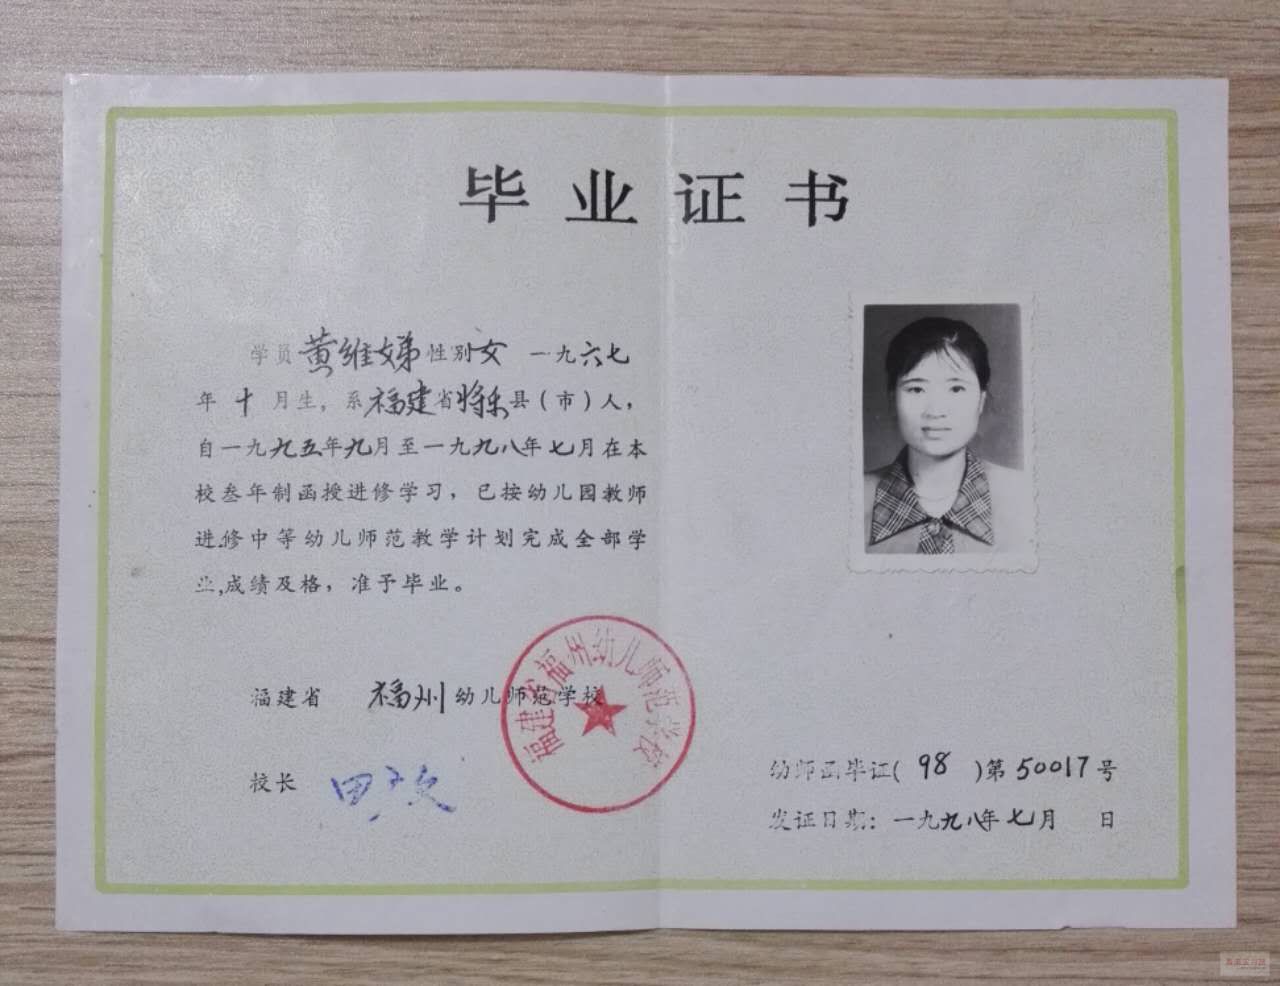 毕业证书
学员黄维娣性别女 一九六七
年十月生，系福建省将乐县（市）人，
自一九九五年九月至一九九八年七月在本
校叁年制函授进修学习，已按幼儿园教师
进修中等幼儿师范教学计划完成全部学
业,成绩及格，准予毕业。
福建省 福州幼儿师范学校
福建省福州幼儿师范学校
校长
幼师函毕证(98)第50017号
发证日期：一九九八年七月 日